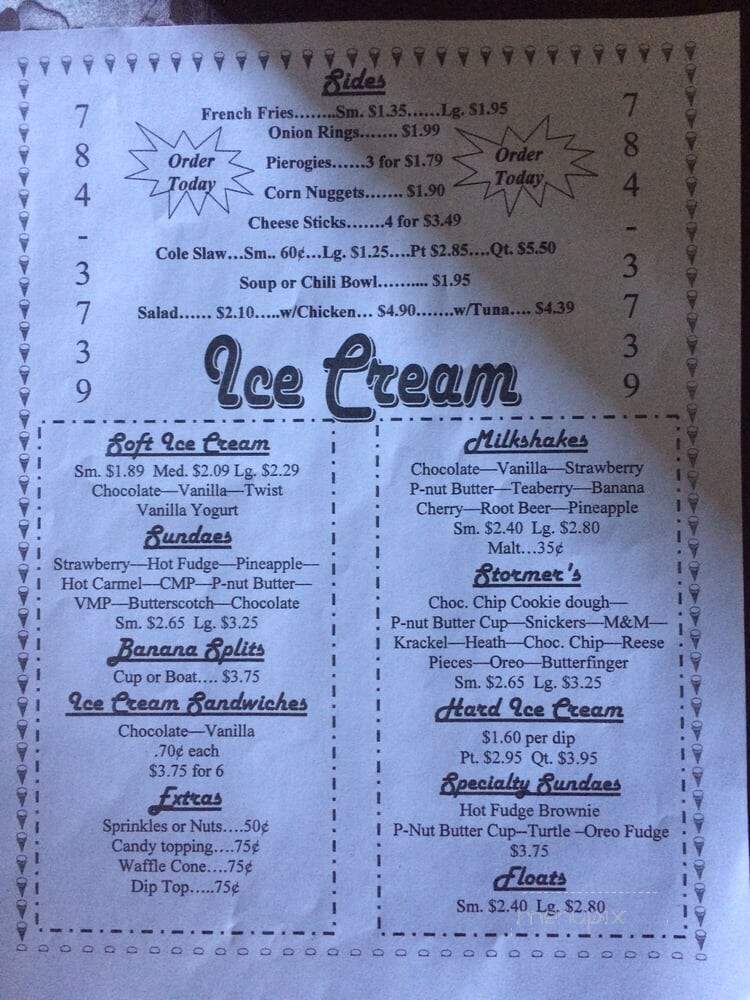 Sides
French Fries........Sm. $1.35......Lg. $1.95
Onion Rings....... $1.99
Order Today
Pierogies......3 for $1.79
Order Today
Corn Nuggets....... $1.90
Cheese Sticks.......4 for $3.49
Cole Slaw...Sm.. 60¢...Lg. $1.25....Pt $2.85....Qt. $5.50
Soup or Chili Bowl.......... $1.95
Salad...... $2.10.....w/Chicken... $4.90.......w/Tuna.... $4.39
784-3739
784-3739
Ice Cream
Soft Ice Cream
Sm. $1.89 Med. $2.09 Lg. $2.29
Chocolate—Vanilla—Twist
Vanilla Yogurt
Sundaes
Strawberry—Hot Fudge—Pineapple—
Hot Carmel—CMP—P-nut Butter—
VMP—Butterscotch—Chocolate
Sm. $2.65 Lg. $3.25
Banana Splits
Cup or Boat.... $3.75
Ice Cream Sandwiches
Chocolate—Vanilla
.70¢ each
$3.75 for 6
Extras
Sprinkles or Nuts....50¢
Candy topping....75¢
Waffle Cone....75¢
Dip Top.....75¢
Milkshakes
Chocolate—Vanilla—Strawberry
P-nut Butter—Teaberry—Banana
Cherry—Root Beer—Pineapple
Sm. $2.40 Lg. $2.80
Malt...35¢
Stormer's
Choc. Chip Cookie dough—
P-nut Butter Cup—Snickers—M&M—
Krackel—Heath—Choc. Chip—Reese
Pieces—Oreo—Butterfinger
Sm. $2.65 Lg. $3.25
Hard Ice Cream
$1.60 per dip
Pt. $2.95 Qt. $3.95
Specialty Sundaes
Hot Fudge Brownie
P-Nut Butter Cup--Turtle –Oreo Fudge
$3.75
Floats
Sm. $2.40 Lg. $2.80
menupix